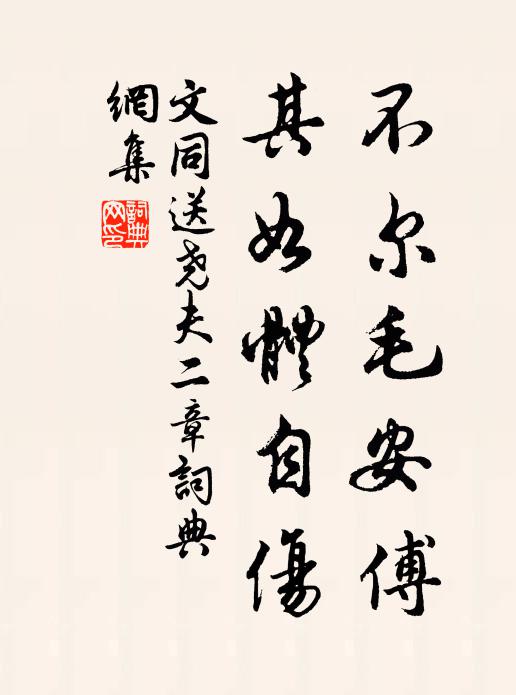 不尔毛安傅
其如體自傷
文同送尧夫二章詞典
網集
詞典
网印